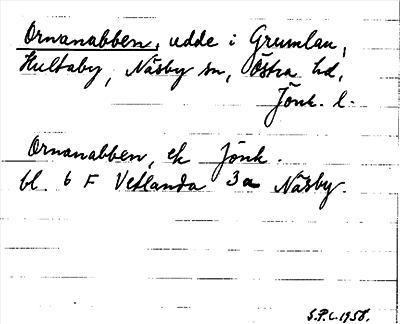 Ornanabben, udde i Grumlan,
Hultaby, Näsby sn, Östra hd,
Jönk. l.
Ornanabben, ek Jönk.
bl. 6 F Vetlanda 3a Näsby.
S.P.L. 1958.